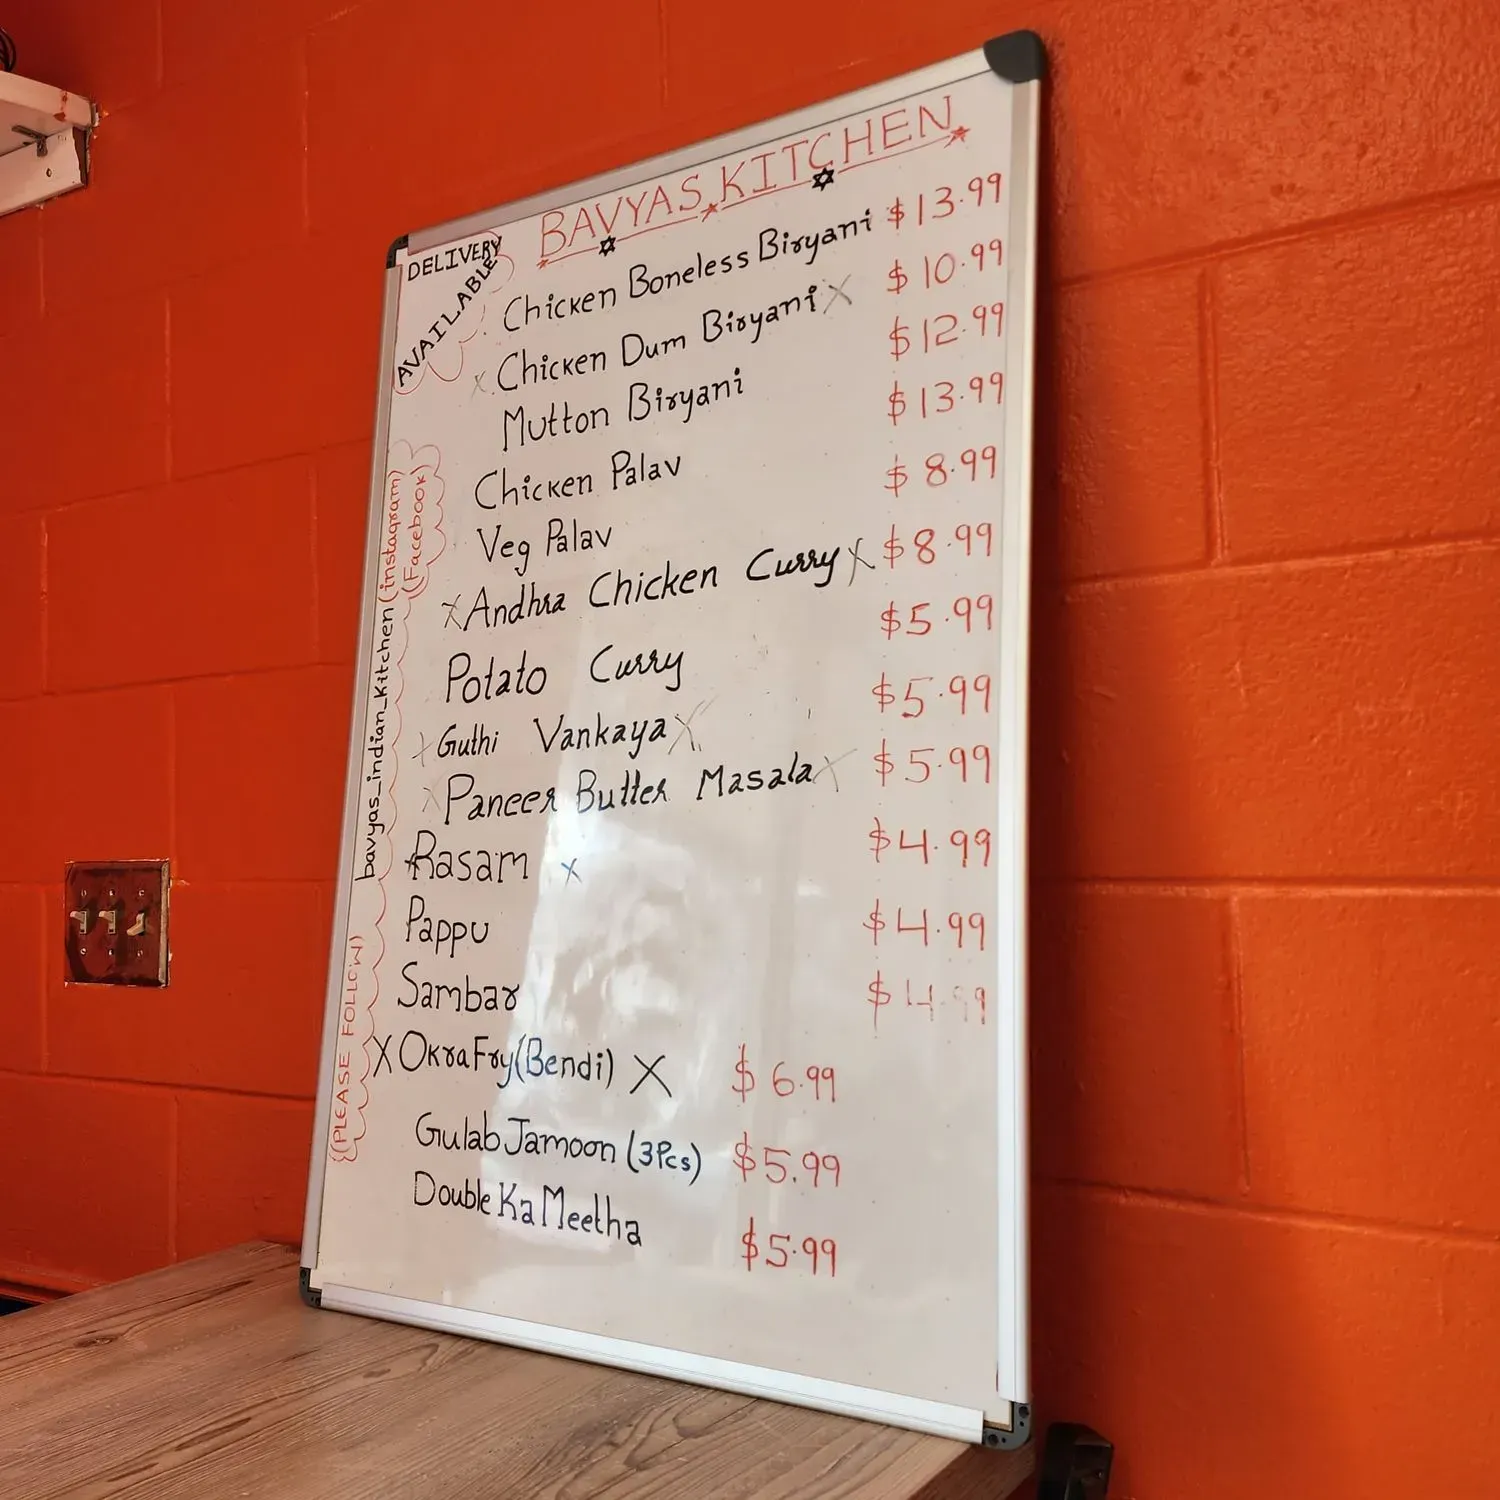 BAVYAS KITCHEN
DELIVERY
AVAILABLE
Chicken Boneless Biryani $13.99
x Chicken Dum Biryani x $10.99
Mutton Biryani $12.99
Chicken Palav $13.99
Veg Palav $8.99
x Andhra Chicken Curry x $8.99
Potato Curry $5.99
x Guthi Vankaya x $5.99
x Paneer Butter Masala x $5.99
x Rasam x $4.99
Pappu $4.99
Sambar $4.99
X Okra Fry (Bendi) X $6.99
Gulab Jamoon (3Pcs) $5.99
Double Ka Meetha $5.99
bavyas_indian_kitchen (instagram)
(Facebook)
(PLEASE FOLLOW)